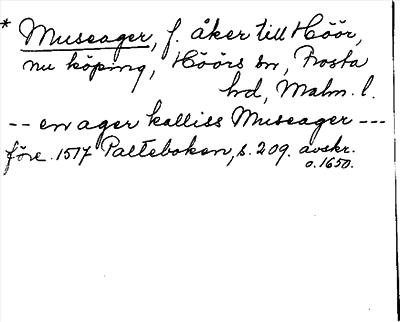 * Museager, f. åker till Höör,
nu köping, Höörs sn, Frosta
hd, Malm. l.
-- en ager kalliss Museager ---
före 1517 Palteboken, s. 209. avskr.
o. 1650.